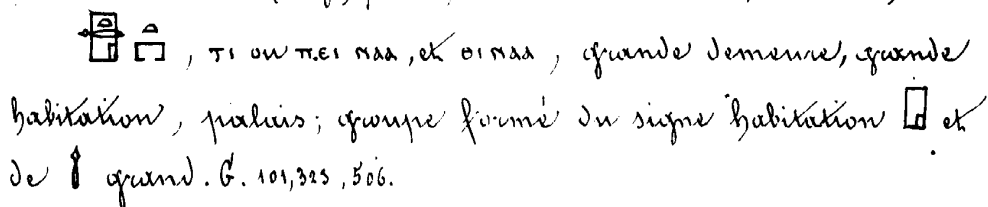 𓉗𓉐, ⲧⲓ ou ⲡⲉⲓ ⲛⲁⲁ, et ⲑⲓ ⲛⲁⲁ, grande demeure, grande
habitation, palais; groupe formé du signe habitation 𓉗 et
de 𓉻 grand. G. 101, 323, 506.